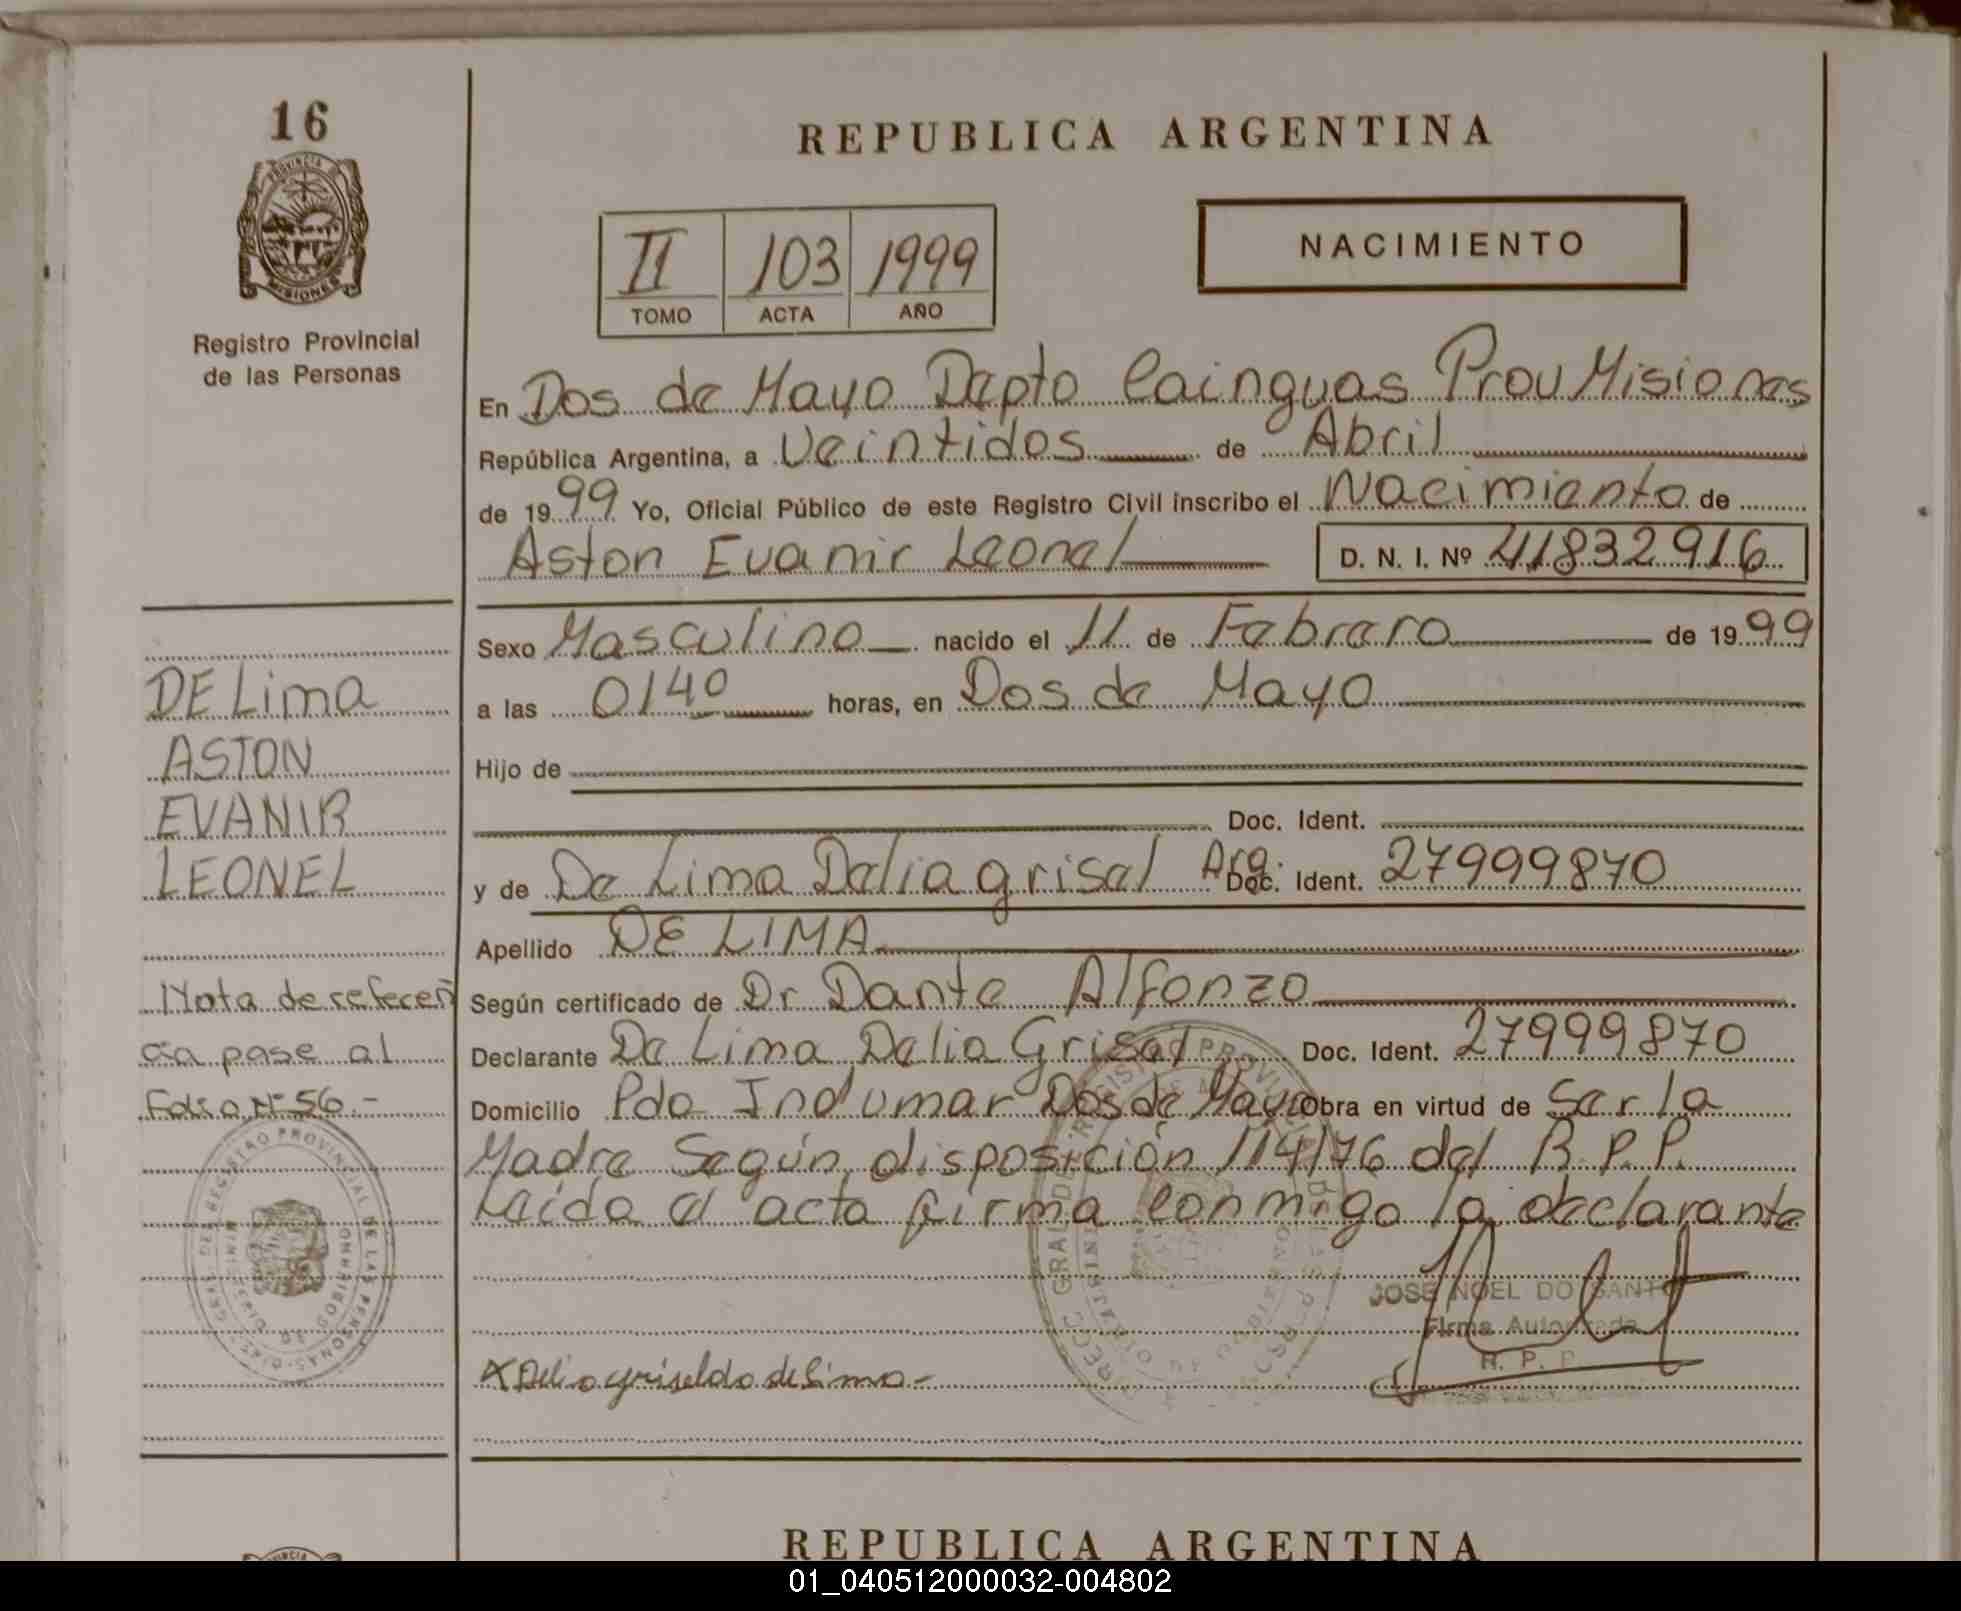 16
PROVINCIA D
MISIONES
Registro Provincial
de las Personas
DE Lima
ASTON
EVANIR
LEONEL
Nota de referen
cia pase al
Folio Nº 56.-
REPUBLICA ARGENTINA
II 103 1999
TOMO ACTA AÑO
NACIMIENTO
En Dos de Mayo Depto Cainguas Prov Misiones
República Argentina, a Veintidos de Abril
de 1999 Yo, Oficial Público de este Registro Civil inscribo el Nacimiento de
Aston Evanir Leonel D. N. I. Nº 41832916
Sexo Masculino nacido el 11 de Febrero de 1999
a las 0140 horas, en Dos de Mayo
Hijo de
Doc. Ident.
y de De Lima Delia grisel Arg. Doc. Ident. 27999870
Apellido DE LIMA
Según certificado de Dr Dante Alfonzo
Declarante De Lima Delia Grisel Doc. Ident. 27999870
Domicilio Pdo Indumar Dos de Mayo Obra en virtud de Ser la
Madre Según disposición 114/76 del R.P.P.
Leída el acta firma conmigo la declarante
JOSE NOEL DO SANTO
Firma Autorizada
R. P. P.
x Delia griselda de Lima-
REPUBLICA ARGENTINA
01_040512000032-004802